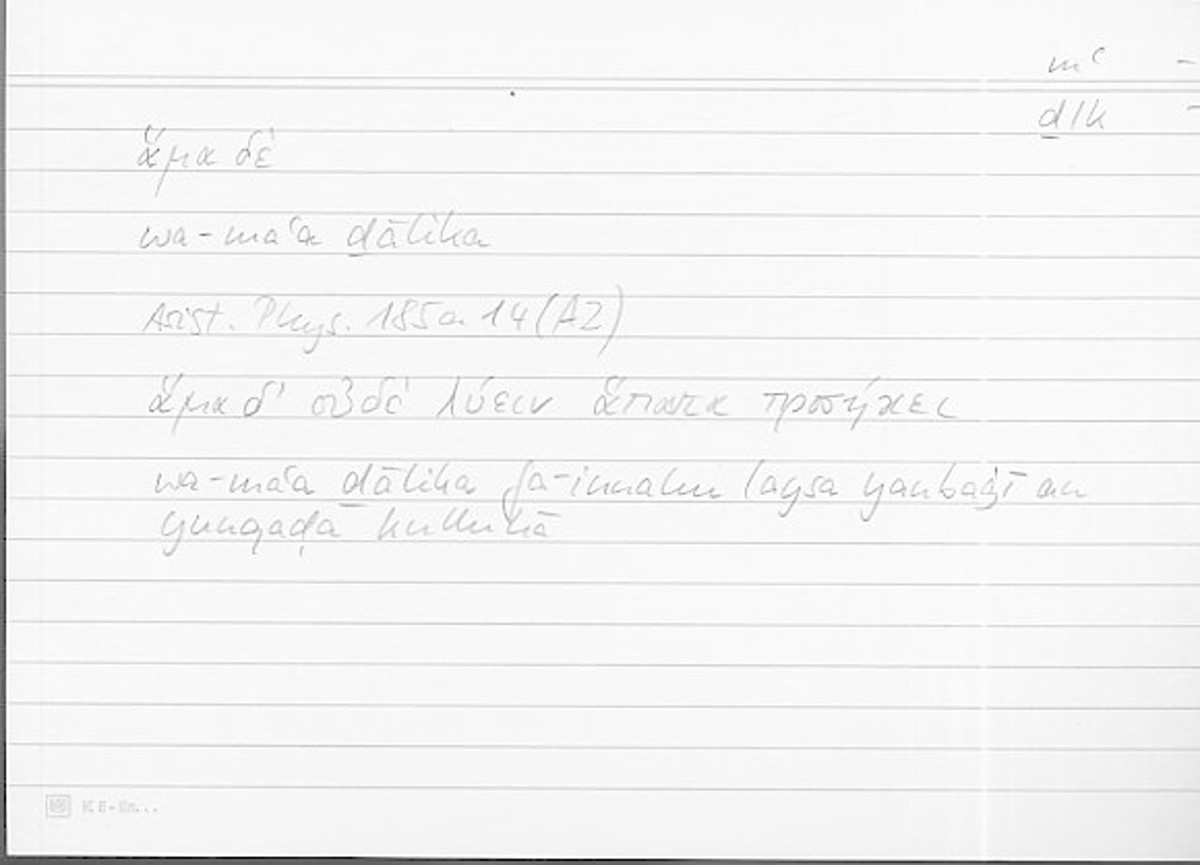 mʿ -
ḏlk -
ἅμα δέ
wa-maʿa ḏālika
Arist. Phys. 185a 14 (A2)
ἅμα δ' οὐδὲ λύειν ἅπαντα προσήκει
wa-maʿa ḏālika fa-innahu laysa yanbaġī an
yunqaḍa kullu mā